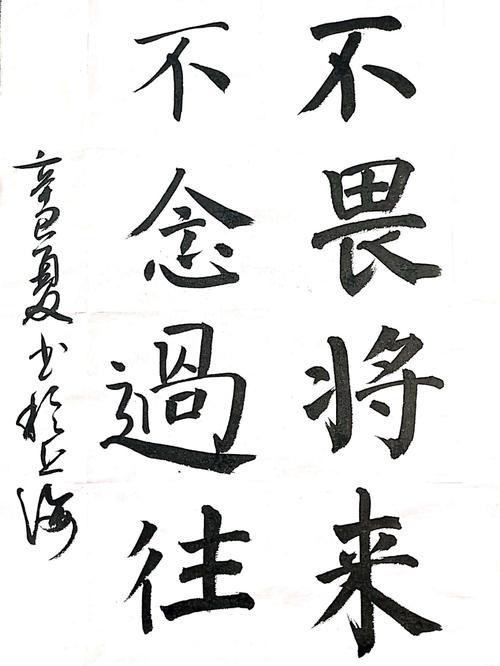 不畏将来
不念過往
辛丑夏书於上海